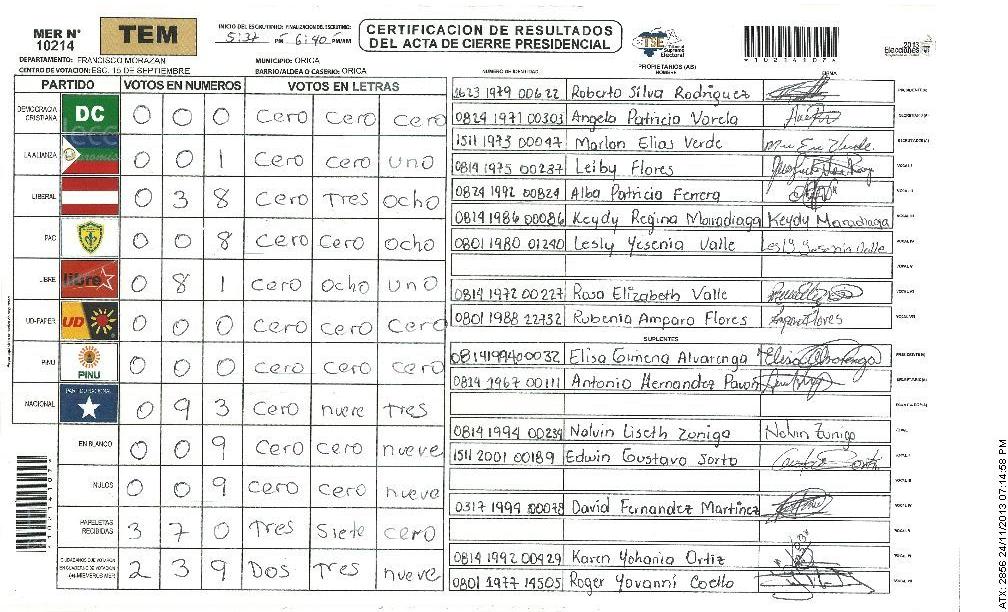 MER N° 10214
TEM
INICIO DEL ESCRUTINIO: 5:37 PM FINALIZACION DEL ESCRUTINIO: 6:40 PM/AM
CERTIFICACION DE RESULTADOS
DEL ACTA DE CIERRE PRESIDENCIAL
TSE Tribunal Supremo Electoral
2013 Elecciones
*10214107*
DEPARTAMENTO: FRANCISCO MORAZAN
MUNICIPIO: ORICA
CENTRO DE VOTACION: ESC. 15 DE SEPTIEMBRE
BARRIO/ALDEA O CASERIO: ORICA
PROPIETARIOS (AS)
NUMERO DE IDENTIDAD NOMBRE FIRMA
PARTIDO VOTOS EN NUMEROS VOTOS EN LETRAS
DEMOCRACIA CRISTIANA DC 0 0 0 Cero Cero cero
LA ALIANZA 0 0 1 Cero cero uno
LIBERAL 0 3 8 Cero Tres ocho
PAC 0 0 8 Cero Cero ocho
LIBRE libre 0 8 1 Cero ocho uno
UD-FAPER UD 0 0 0 Cero Cero Cero
PINU PINU 0 0 0 Cero cero cero
NACIONAL PARTIDO NACIONAL 0 9 3 Cero nueve Tres
EN BLANCO 0 0 9 Cero cero nueve
NULOS 0 0 9 Cero cero nueve
PAPELETAS RECIBIDAS 3 7 0 Tres Siete cero
CIUDADANOS QUE VOTARON EN CUADERNO DE VOTACION (+) MIEMBROS MER 2 3 9 Dos Tres nueve
1623 1979 00622 Roberto Silva Rodriguez PRESIDENTE(A)
0824 1971 00303 Angela Patricia Varela SECRETARIO(A)
1511 1973 00047 Marlon Elias Verde
0814 1975 00237 Leiby Flores VOCAL I
0824 1992 00824 Alba Patricia Ferrera VOCAL II
0814 1986 00086 Keydy Regina Maradiaga Keydy Maradiaga VOCAL III
0801 1980 01240 Lesly Yesenia Valle Lesly Yesenia Valle VOCAL IV
VOCAL V
0814 1972 00227 Rosa Elizabeth Valle VOCAL VI
0801 1988 22732 Rubenia Amparo Flores VOCAL VII
SUPLENTES
0814 1994 00032 Elisa Gimena Alvarenga PRESIDENTE(A)
0814 1967 00111 Antonio Hernandez Pavon SECRETARIO(A)
0814 1994 00234 Nolvin Liseth Zuniga Nolvin Zuniga
1511 2001 00189 Edwin Gustavo Sorto VOCAL I
VOCAL II
0317 1999 00078 David Fernandez Martinez
0814 1992 00429 Karen Yohania Ortiz
0801 1977 14505 Roger Yovanni Coello VOCAL VII
*10214107*
ATX-2856 24/11/2013 07:14:58 PM